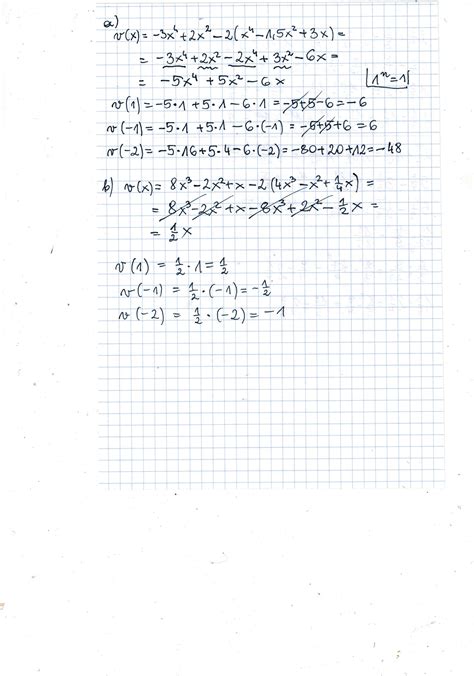 a)
v(x) = -3x⁴+2x²-2(x⁴-1,5x²+3x)=
= -3x⁴+2x²-2x⁴+3x²-6x=
= -5x⁴+5x²-6x
1ⁿ=1
v(1)=-5·1+5·1-6·1=-5+5-6=-6
v(-1)=-5·1+5·1-6·(-1)=-5+5+6=6
v(-2)=-5·16+5·4-6·(-2)=-80+20+12=-48
b) v(x)= 8x³-2x²+x-2(4x³-x²+1/4x)=
= 8x³-2x²+x-8x³+2x²-1/2x=
= 1/2x
v(1) = 1/2·1=1/2
v(-1) = 1/2·(-1)=-1/2
v(-2) = 1/2·(-2)=-1